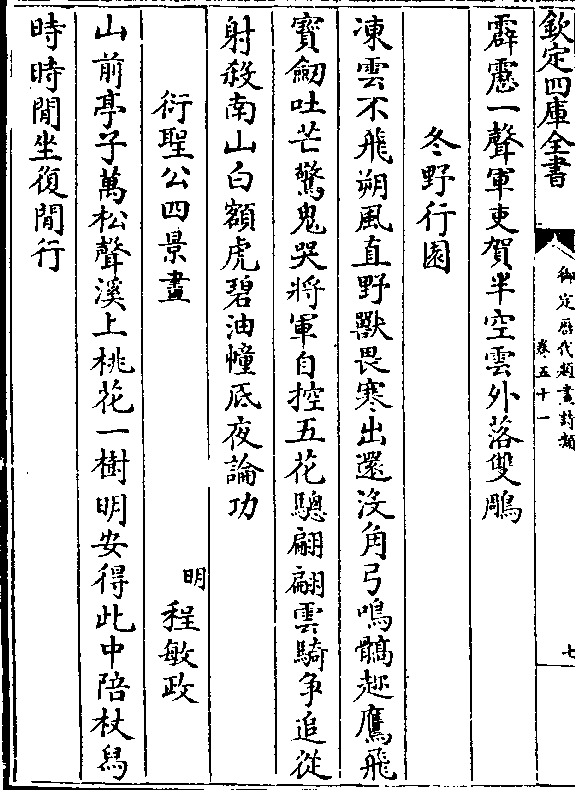 欽定四庫全書
御定歷代題畫詩類
卷五十一
七
霹靂一聲軍吏賀半空雲外落雙鵰
冬野行圍
凍雲不飛朔風直野獸畏寒出還沒角弓鳴髇趂鷹飛
寳劒吐芒驚鬼哭將軍自控五花驄翩翩雲騎争追從
射殺南山白額虎碧油幢底夜論功
衍聖公四景畫
明程敏政
山前亭子萬松聲溪上桃花一樹明安得此中陪杖舄
時時閒坐復閒行